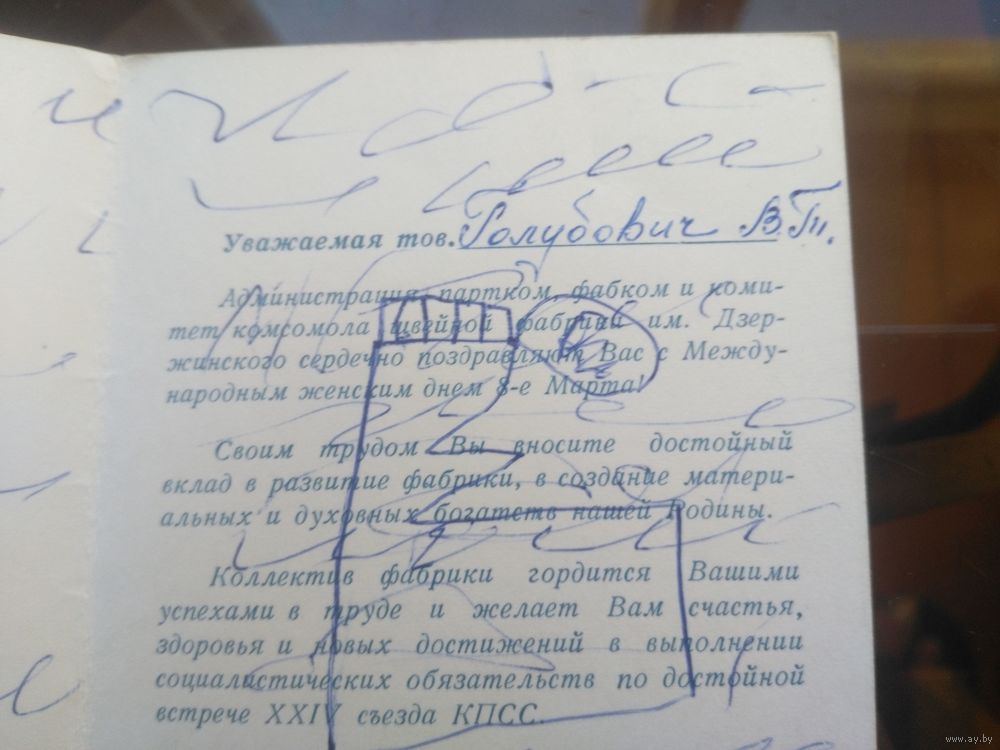 Уважаемая тов. Голубович В.Т.
Администрация, партком, фабком и коми-
тет комсомола швейной фабрики им. Дзер-
жинского сердечно поздравляют Вас с Между-
народным женским днем 8-е Марта!
Своим трудом Вы вносите достойный
вклад в развитие фабрики, в создание матери-
альных и духовных богатств нашей Родины.
Коллектив фабрики гордится Вашими
успехами в труде и желает Вам счастья,
здоровья и новых достижений в выполнении
социалистических обязательств по достойной
встрече XXIV съезда КПСС.
www.ay.by